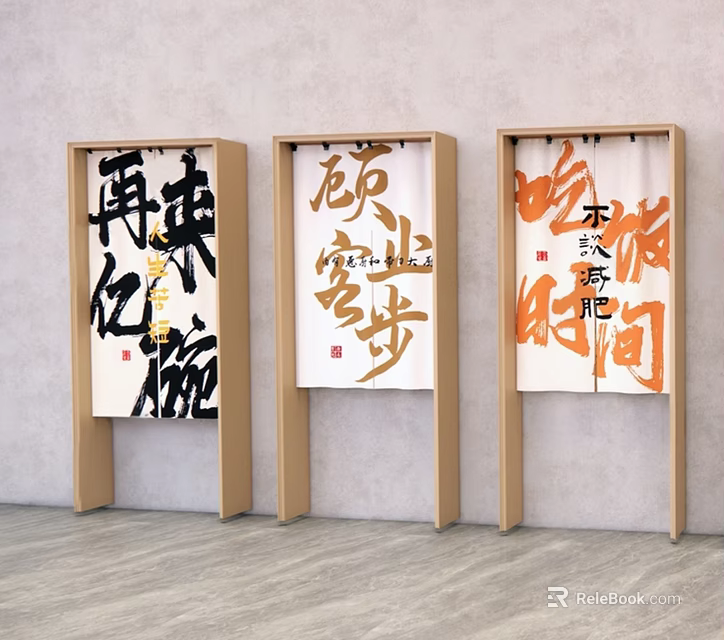 再来亿碗
人生苦短
顾客止步
吃饭时间
不談减肥
ReleBook.com